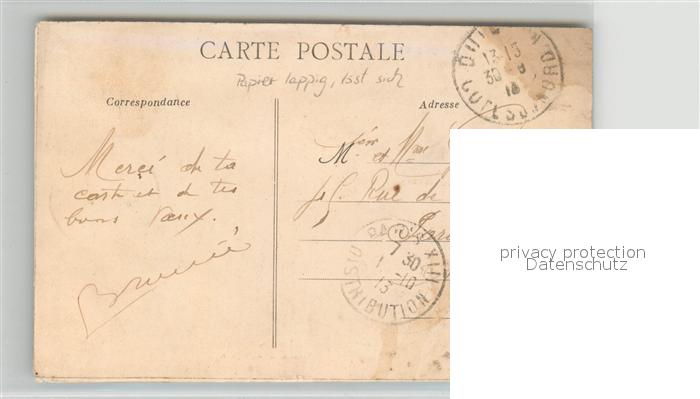 CARTE POSTALE
Papier lappig, löst sich
Correspondance
Adresse
Merci de ta
carte et de tes
bons vœux.
M. et Mme
Rue de
13-13
30
CÔTES DU NORD
PARIS XIII
7 30
1 10
13
DISTRIBUTION
privacy protection
Datenschutz